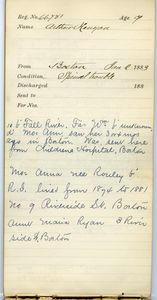 Reg. No. 66,781 Age 9
Name Arthur Kenyon
From Boston Jan 2 1889
Condition, Spinal trouble
Discharged 188
Sent to
For Nos.
10 b Fall River. Far Wm b unknown
Mor Ann, san her 3 or 4 mos
ago in Boston. Was sent here
from Childrens Hospital, Boston
Mor Anna nee Rouley b
R.I. lived from 1874 to 1881
no. 9 Riverside St. Boston
aunt Maria Ryan 8 River
side St. Boston